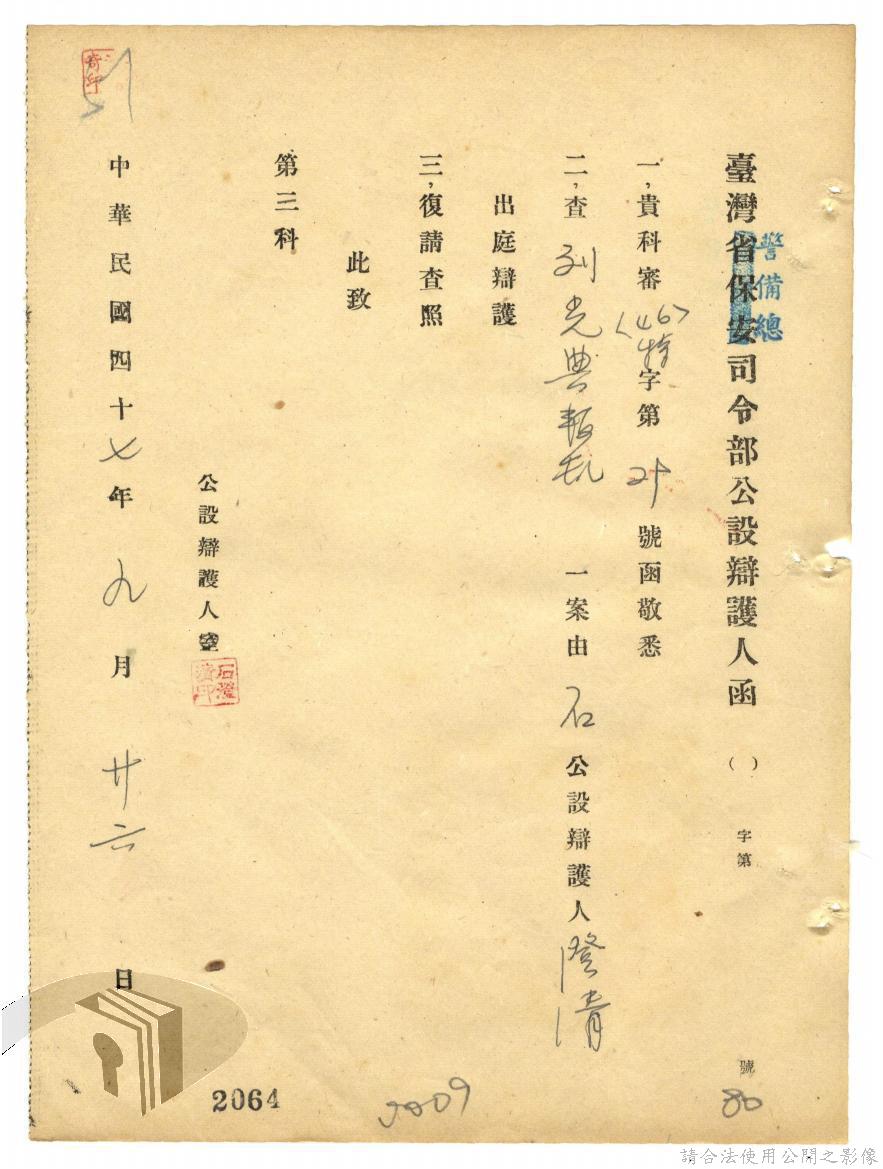 臺灣省保安司令部公設辯護人函 ( ) 字第 號
警備總
80
一,貴科審(46)特字第 號函敬悉
二,查 劉光典叛亂 一案由 石 公設辯護人 澄清
出庭辯護
三,復請查照
此致
第三科
公設辯護人室
石澄清印
中華民國四十七年九月廿六日
2064
請合法使用公開之影像